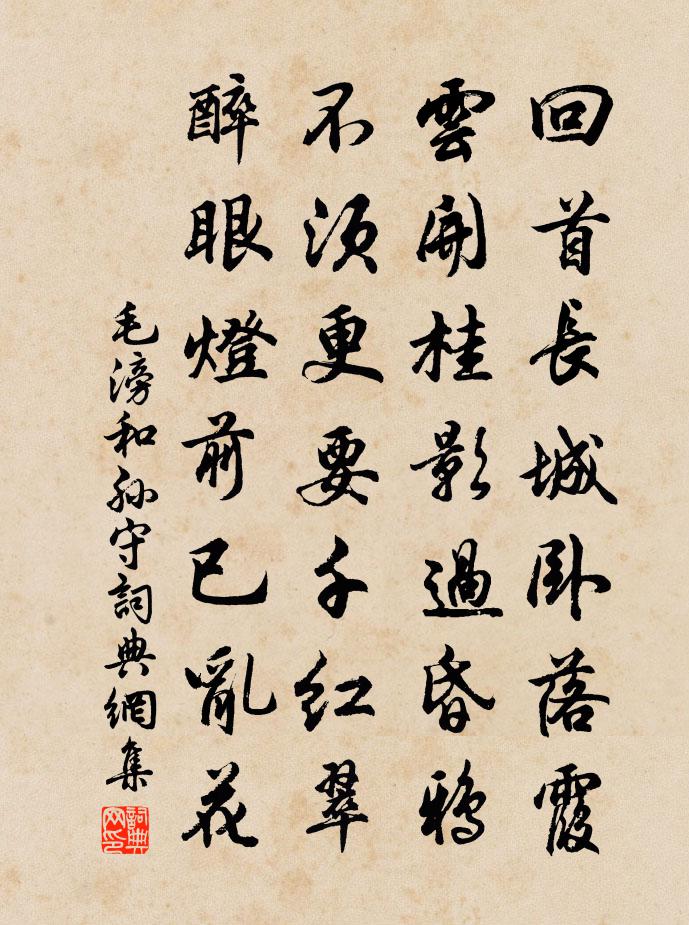 回首長城卧落霞
雲開桂影過昏鴉
不須更要千紅翠
醉眼燈前已亂花
毛滂和孙守詞典網集
詞典网印